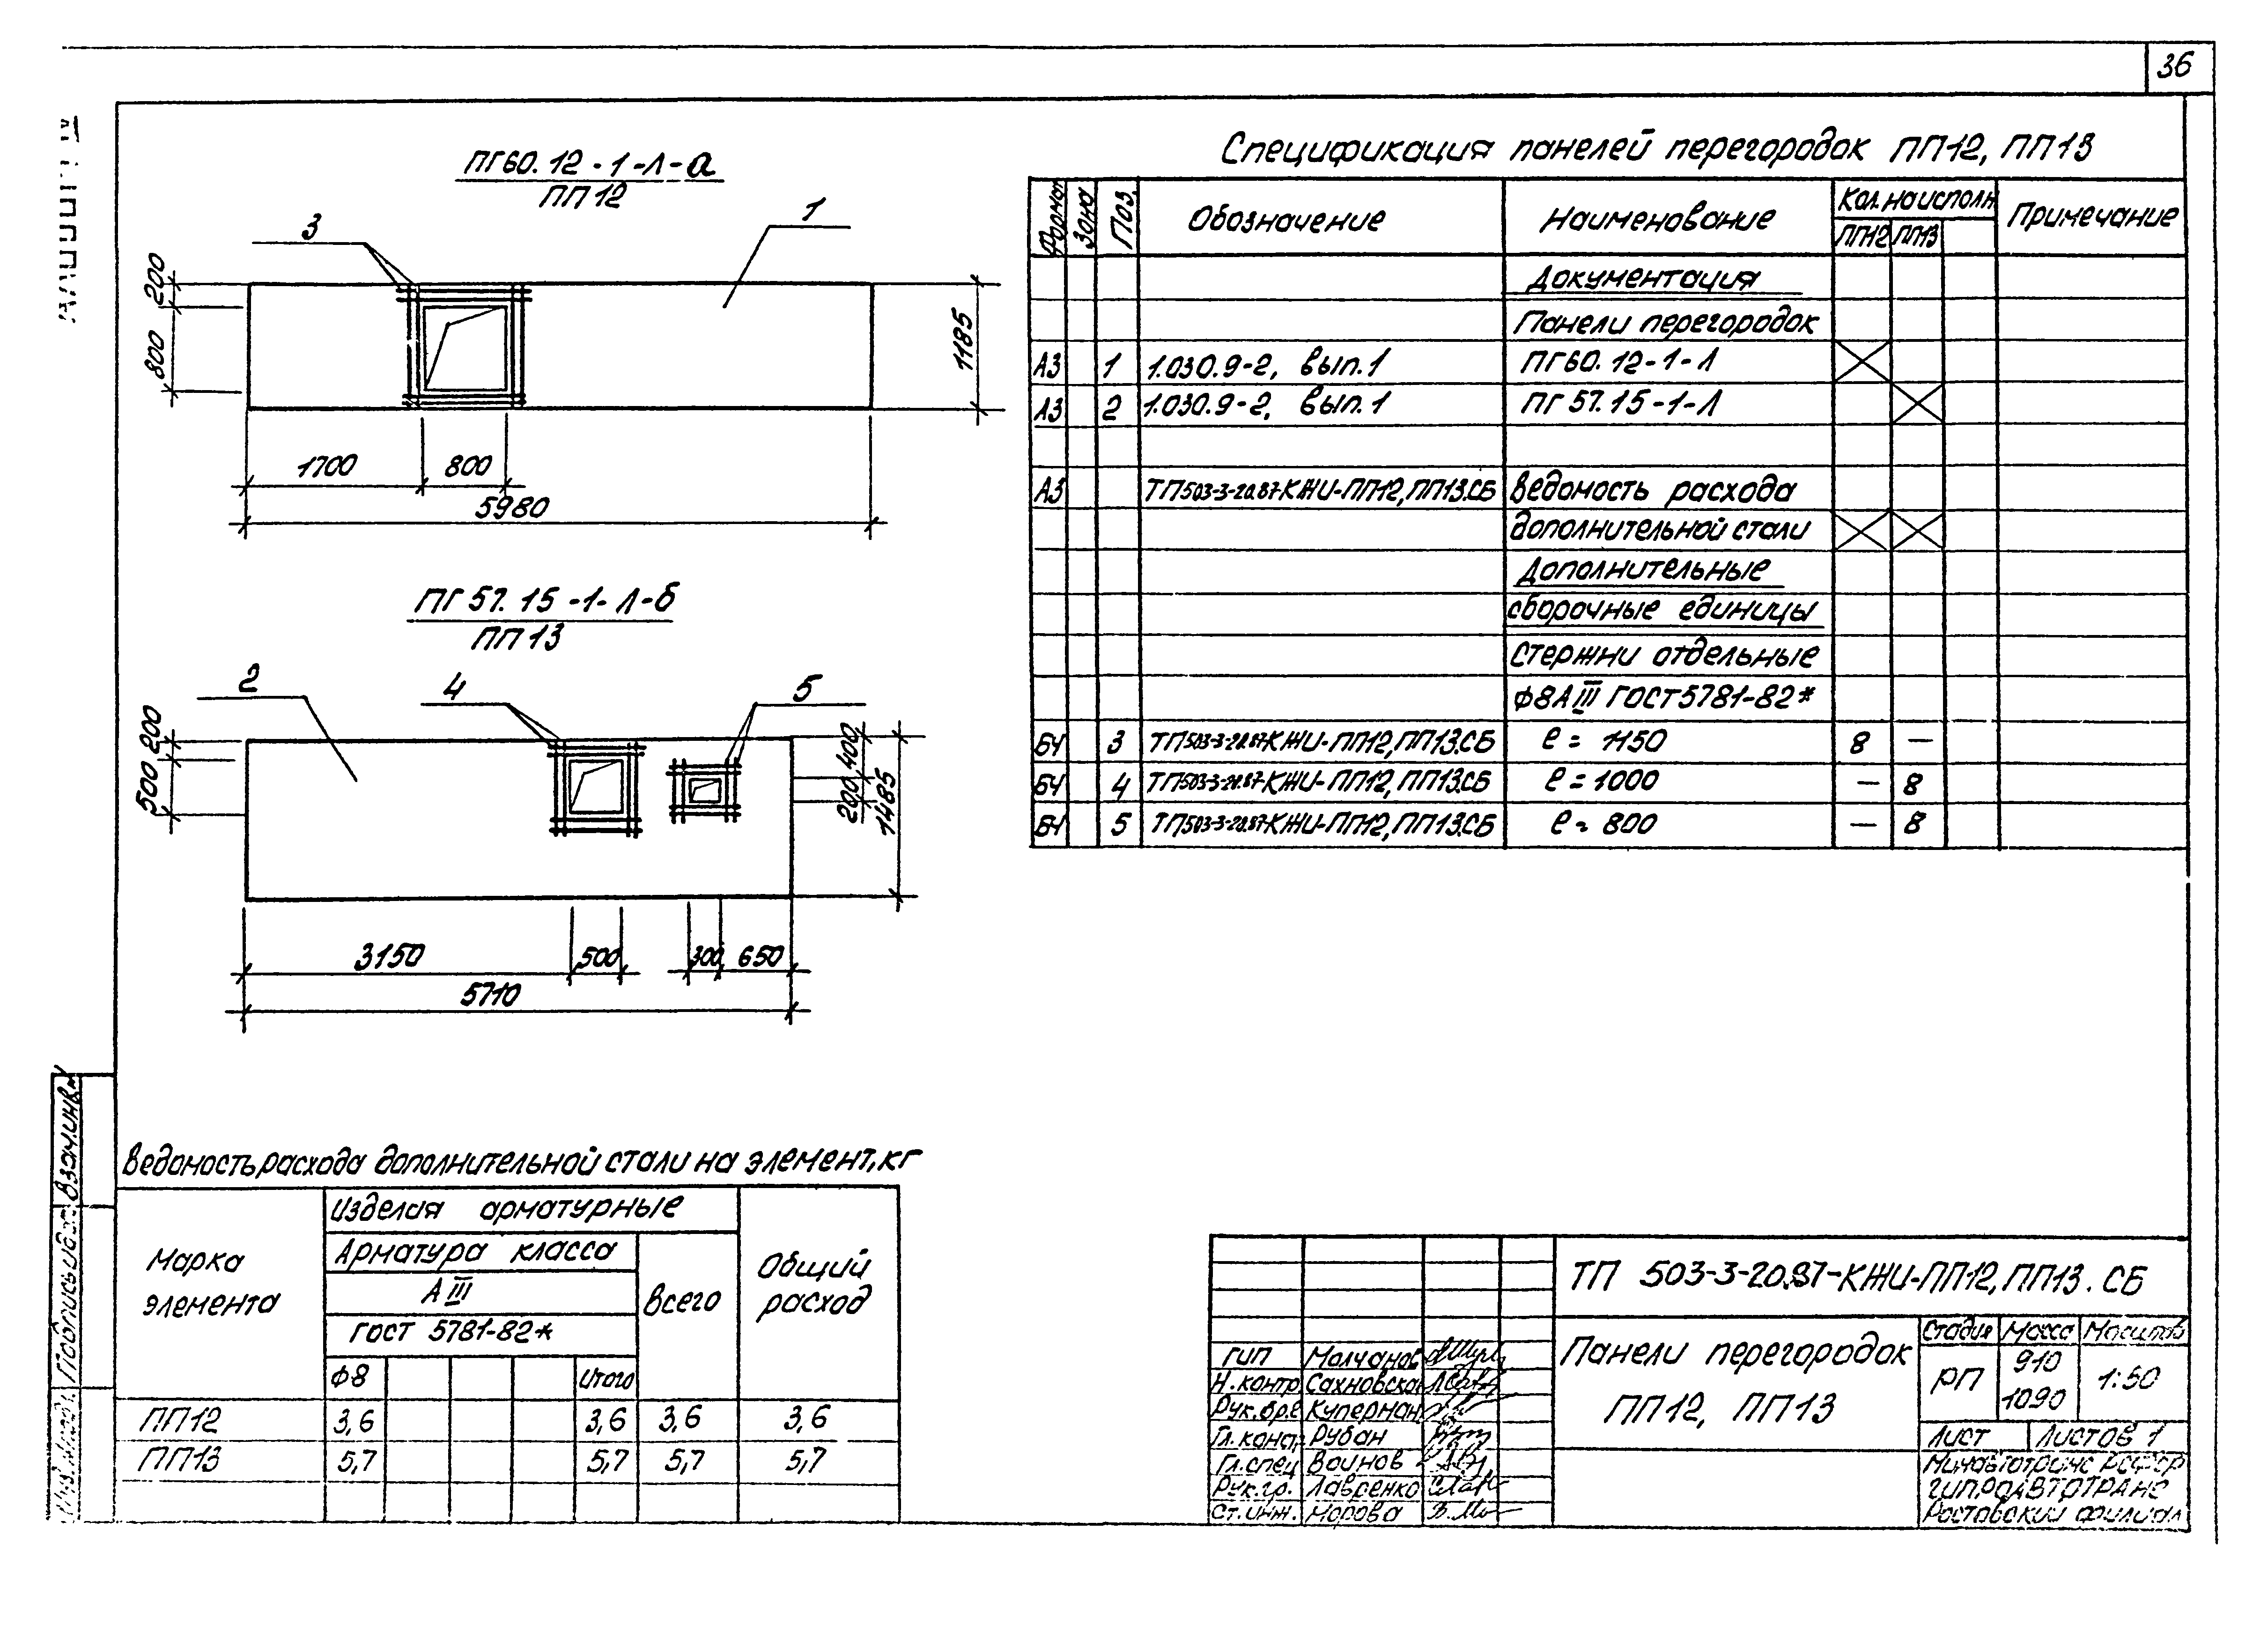 36
ПГ60.12-1-Л-а
ПП12
3
1
200
800
1185
1700
800
5980
ПГ57.15-1-Л-б
ПП13
2
4
5
200
500
400
200
1485
3150
500
300
650
5710
Спецификация панелей перегородок ПП12, ПП13
Формат Зона Поз. Обозначение Наименование Кол. на исполн Примечание
ПП12 ПП13
Документация
Панели перегородок
А3 1 1.030.9-2, вып.1 ПГ60.12-1-Л
А3 2 1.030.9-2, вып.1 ПГ57.15-1-Л
А3 ТП503-3-20.87-КЖИ-ПП12,ПП13.СБ Ведомость расхода
дополнительной стали
Дополнительные
сборочные единицы
Стержни отдельные
Ф8АIII ГОСТ5781-82*
БЧ 3 ТП503-3-20.87-КЖИ-ПП12,ПП13.СБ ℓ = 1150 8 —
БЧ 4 ТП503-3-20.87-КЖИ-ПП12,ПП13.СБ ℓ = 1000 — 8
БЧ 5 ТП503-3-20.87-КЖИ-ПП12,ПП13.СБ ℓ = 800 — 8
Ведомость расхода дополнительной стали на элемент, кг
Марка элемента Изделия арматурные Общий расход
Арматура класса Всего
АIII
ГОСТ 5781-82*
Ф8 Итого
ПП12 3,6 3,6 3,6 3,6
ПП13 5,7 5,7 5,7 5,7
Взам.инв.
Подпись и дата
ТП 503-3-20.87-КЖИ-ПП12,ПП13.СБ
Панели перегородок
ПП12, ПП13
Стадия Масса Масштаб
РП 910 1:50
1090
Лист Листов 1
Минавтотранс РСФСР
ГИПРОАВТОТРАНС
Ростовский филиал
ГИП Молчанов
Н.контр Сахновская
Рук.бр. Куперман
Гл.конс. Рубан
Гл.спец Воинов
Рук.гр. Лавренко
Ст.инж. Морова